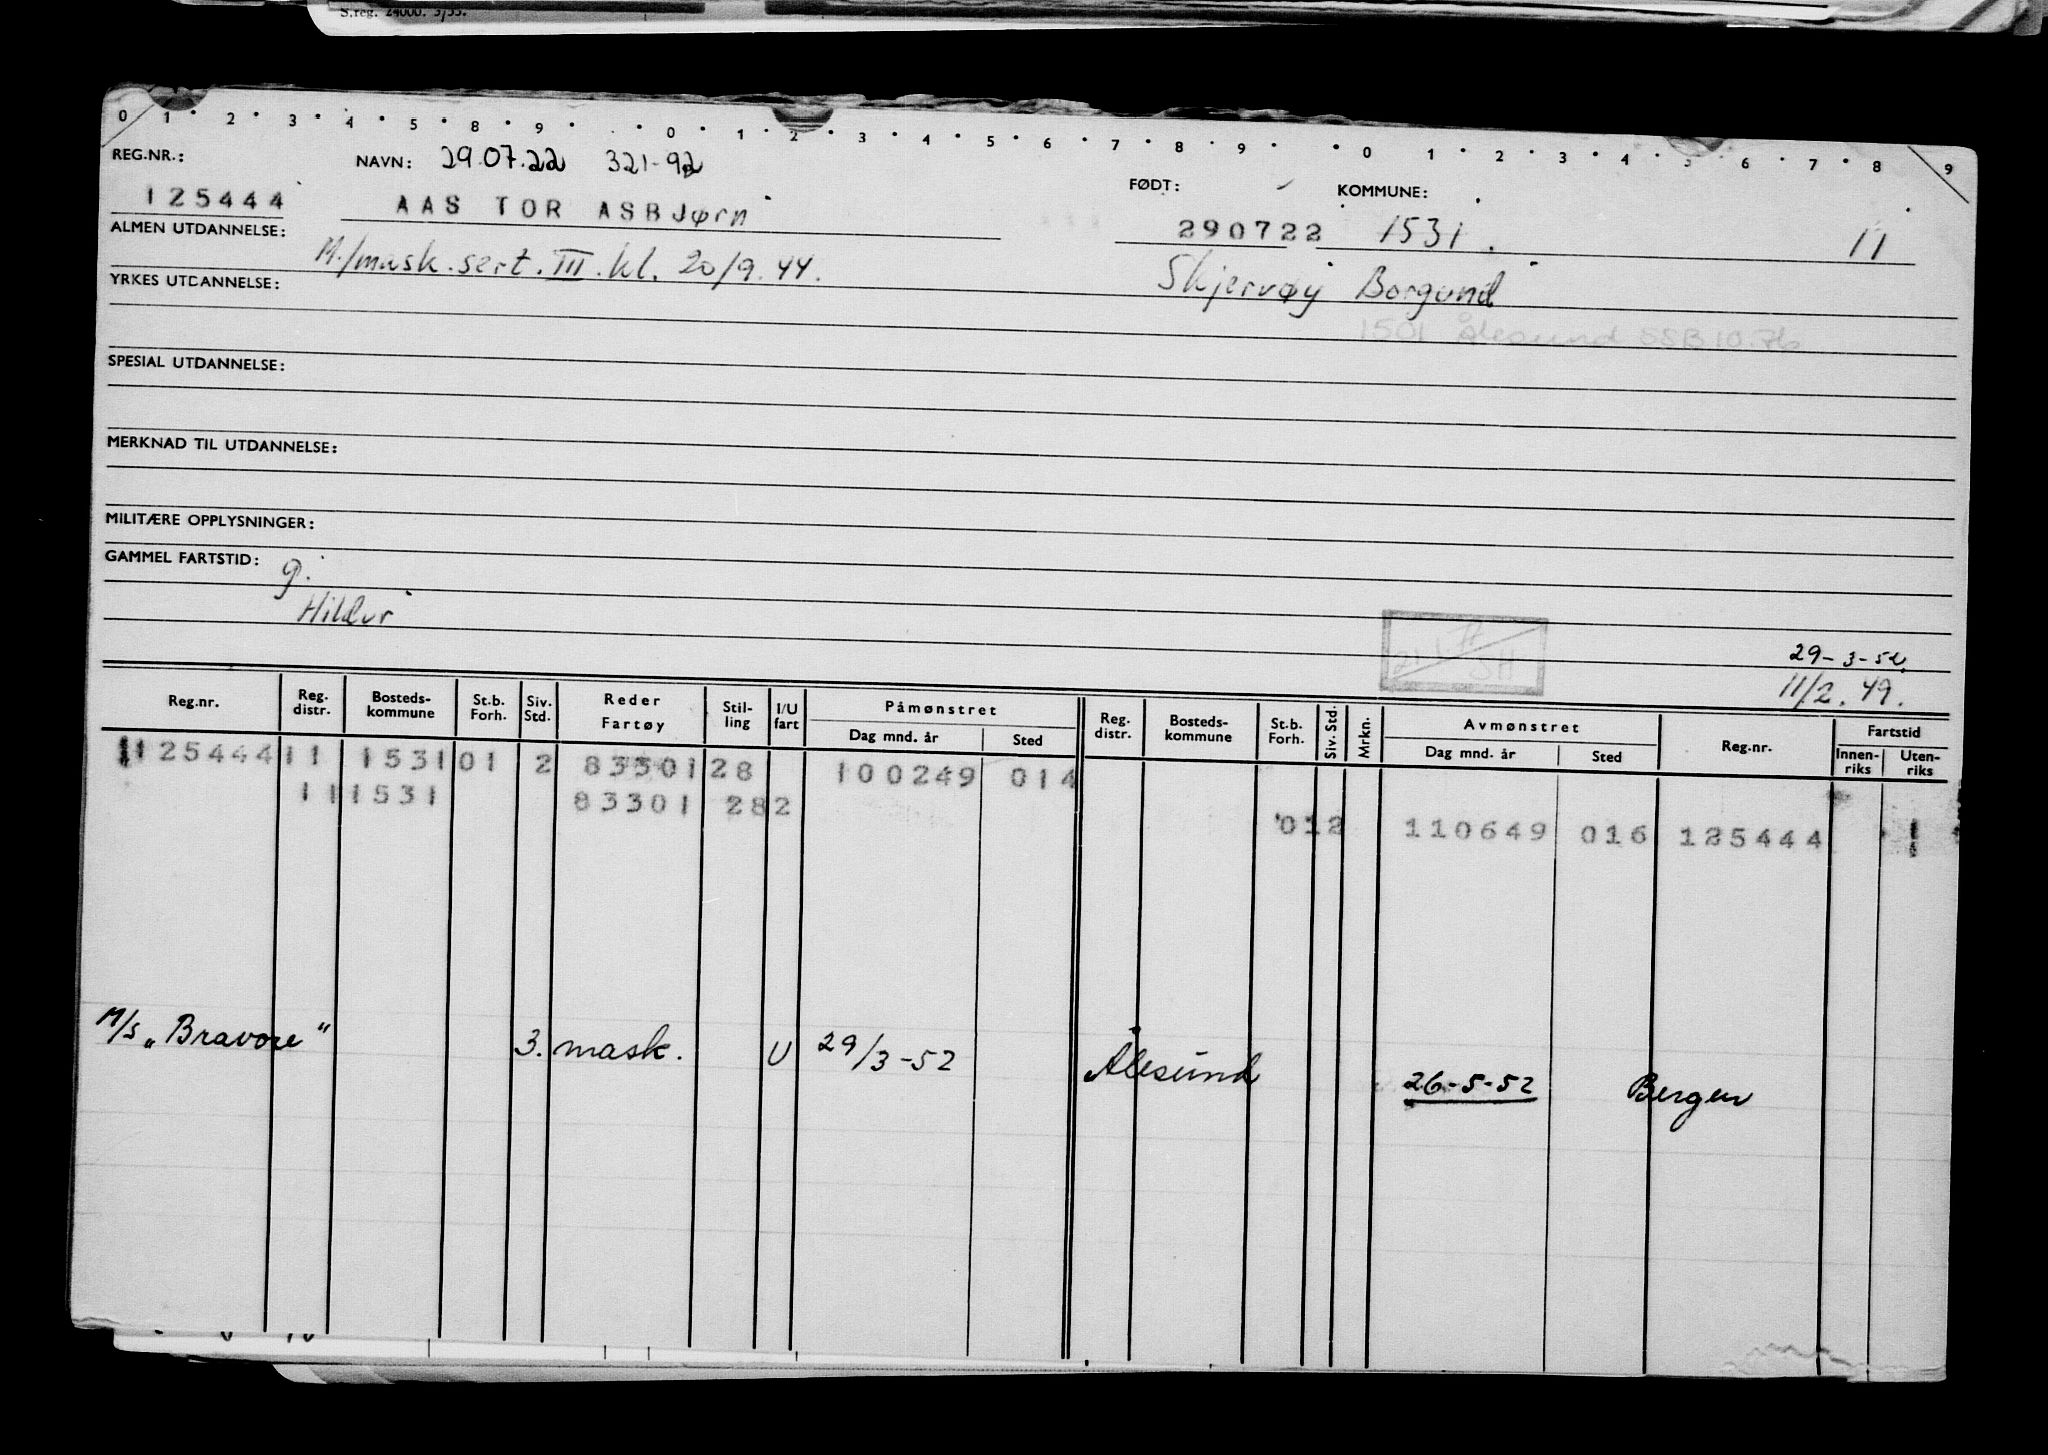 S.reg. 24000. 3/55.
0 1 2 3 4 5 8 9 0 1 2 3 4 5 6 7 8 9 0 1 2 3 4 5 6 7 8 9
REG.NR.: NAVN: 29.07.22 321-92 FØDT: KOMMUNE:
125444 AAS TOR ASBJørn 290722 1531. 11
ALMEN UTDANNELSE: M./mask.sert. III. kl. 20/9.44. Skjervøy Borgund
YRKES UTDANNELSE:
1501 Ålesund SSB 10.76
SPESIAL UTDANNELSE:
MERKNAD TIL UTDANNELSE:
MILITÆRE OPPLYSNINGER:
GAMMEL FARTSTID: g.
Hildur
29-3-52.
11/2.49.
Reg.nr. Reg. distr. Bosteds-kommune St.b. Forh. Siv. Std. Reder Fartøy Stil-ling I/U fart Påmønstret Dag mnd. år Sted Reg. distr. Bosteds-kommune St.b. Forh. Siv. Std. Mrkn. Avmønstret Dag mnd. år Sted Reg.nr. Fartstid Innen-riks Uten-riks
125444 11 1531 01 2 83301 28 100249 014
11 1531 83301 28 2 012 110649 016 125444
M/s „Bravore" 3. mask. U 29/3-52 Ålesund 26-5-52 Bergen